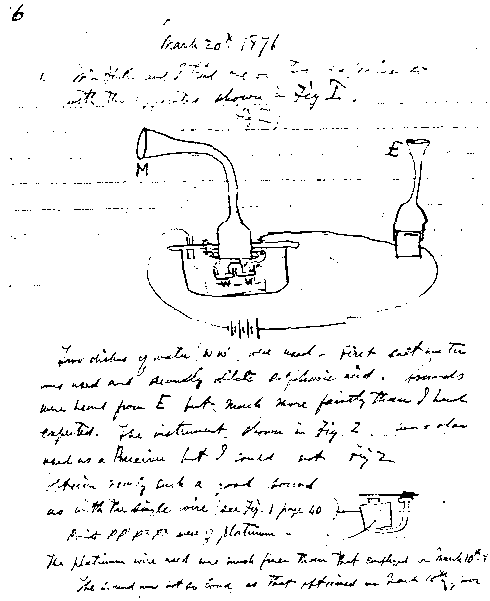 6
March 20th 1876
1. and I tried
with the shown in Fig I.
Fig I
M
E
Two dishes of water W W' were used. First salt water
was used and secondly dilute sulphuric acid. Sounds
were heard from E but much more faintly than I had
expected. The instrument shown in Fig. 2. was also
used as a Receiver but I could not Fig 2
such a good sound
as with the single wire (see Fig. 1 page 40)
P P' P² P³ were of platinum.
The platinum wire used was much finer than that employed on March 10th
The sound was not so loud as that obtained on March 10th, nor